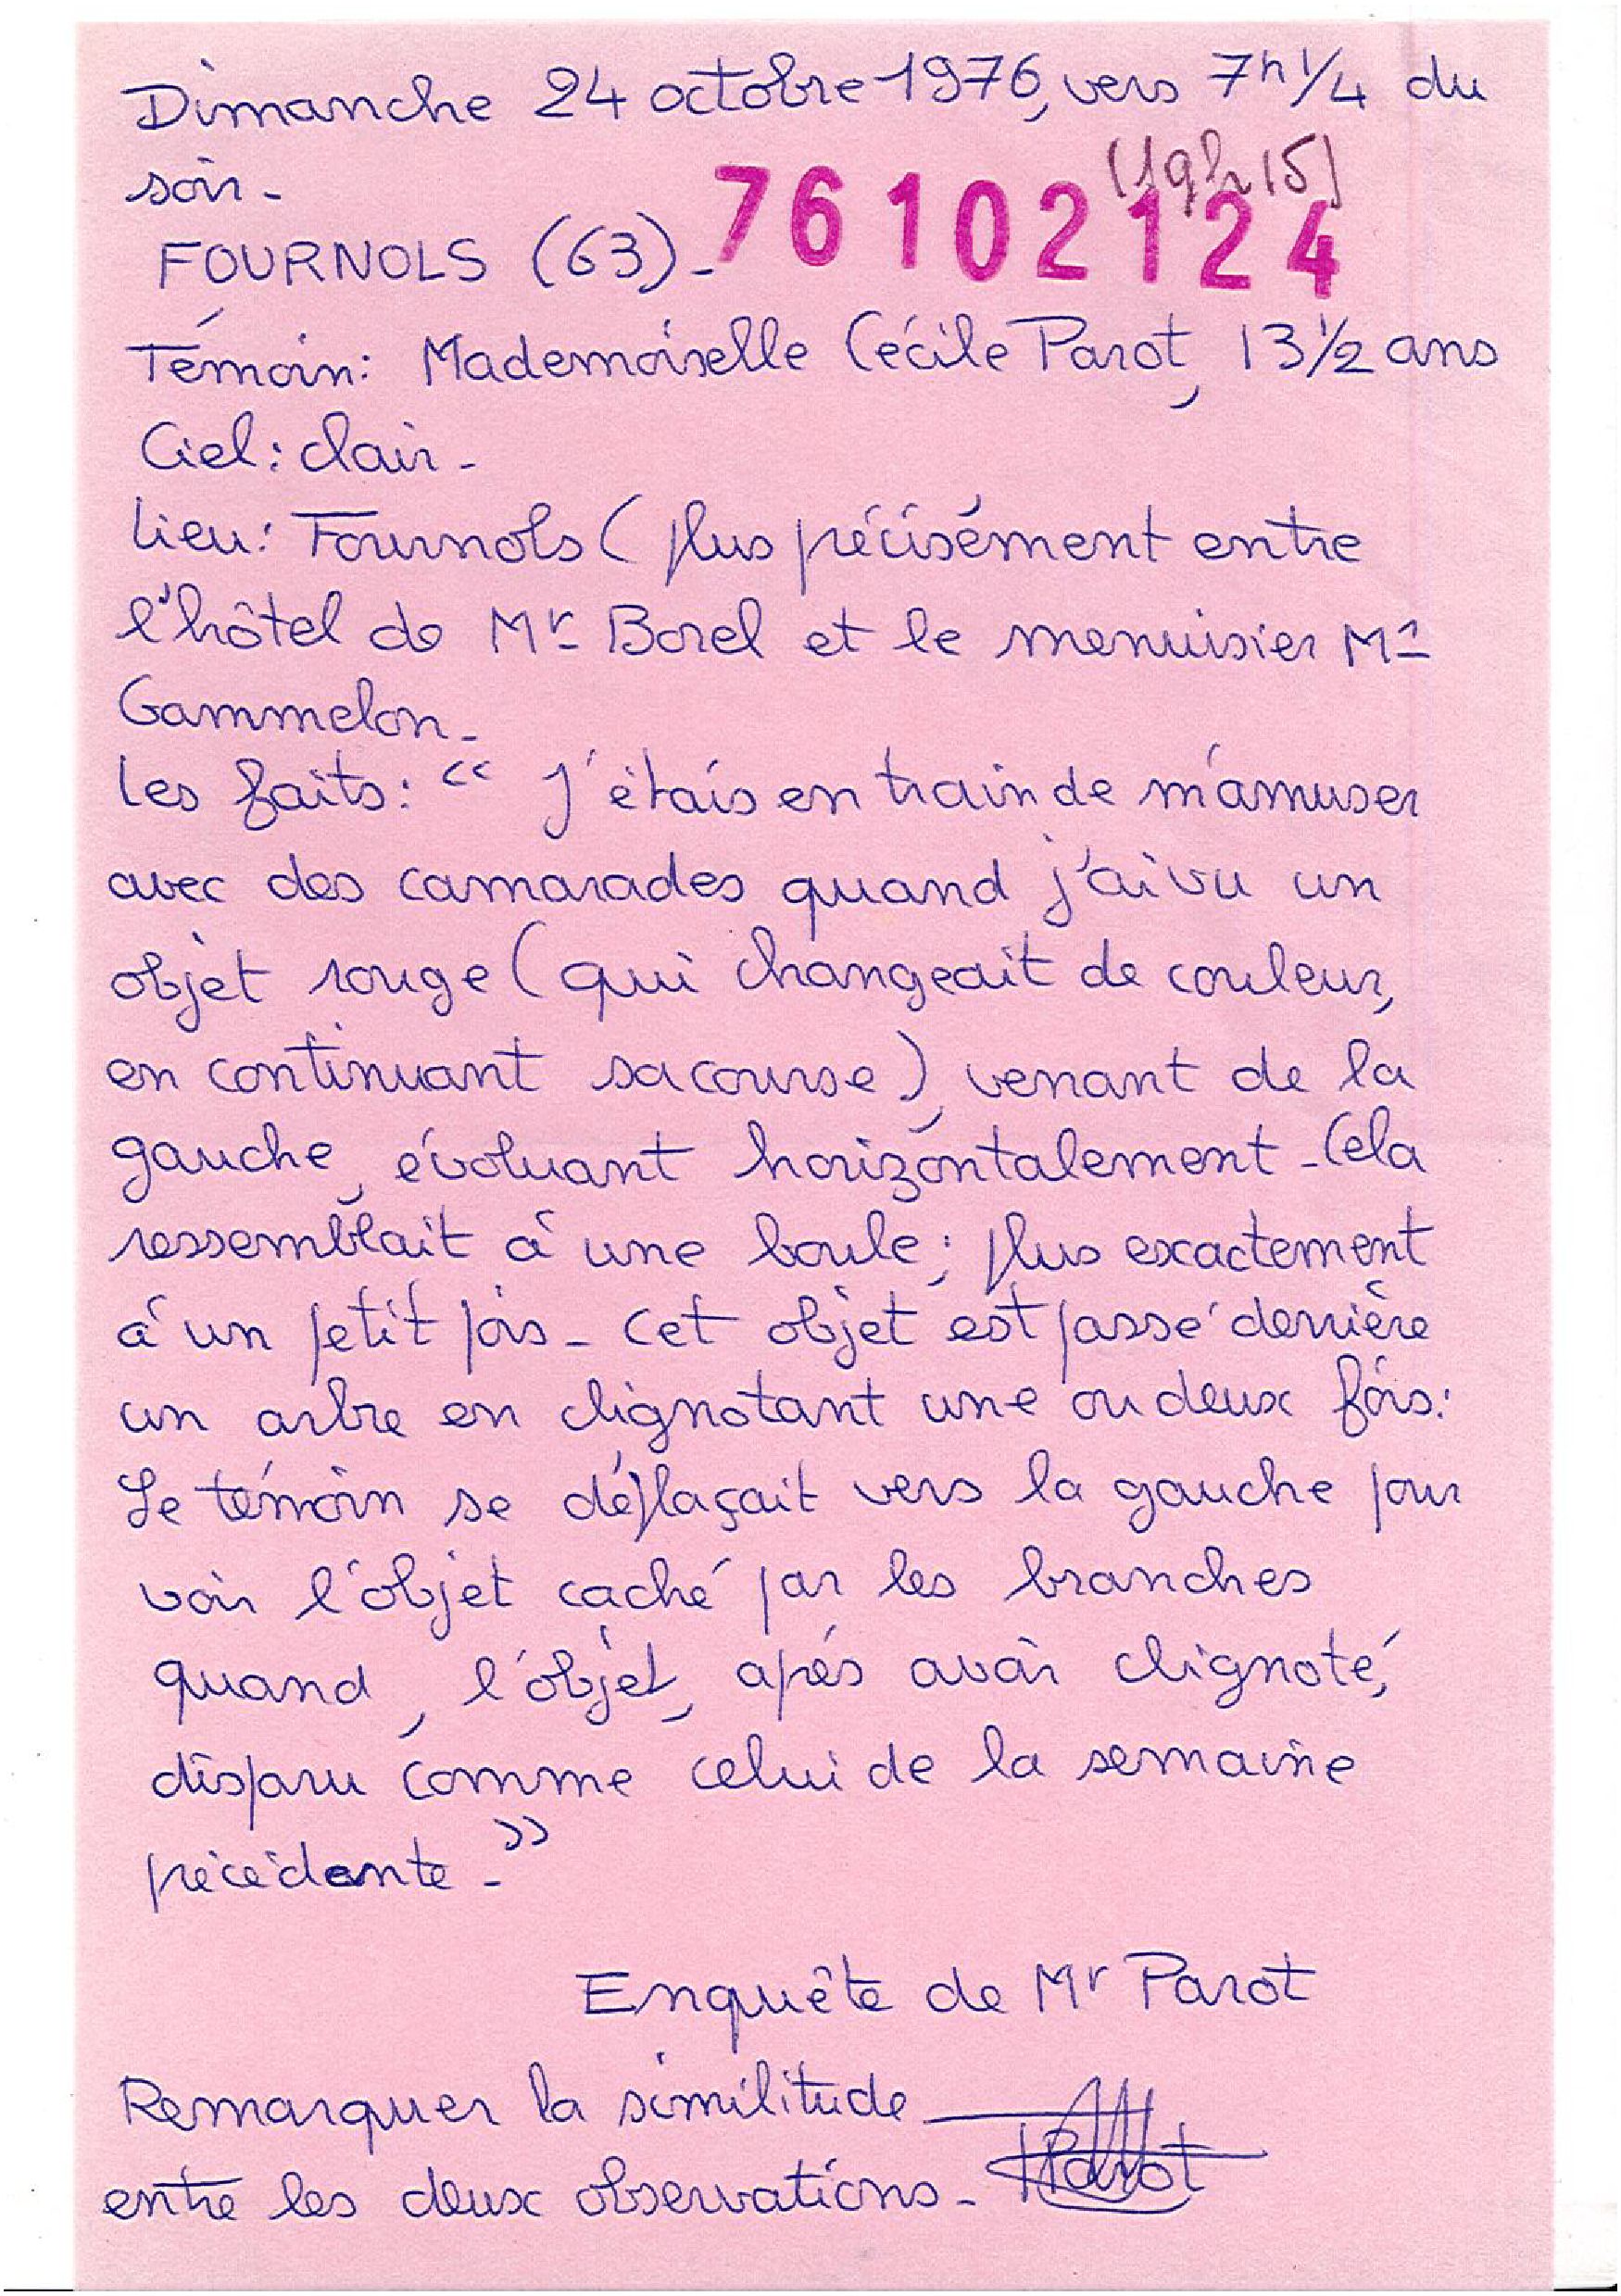 Dimanche 24 octobre 1976, vers 7h 1/4 du
soir -
(19h15)
FOURNOLS (63) - 76102124
Témoin: Mademoiselle Cécile Parot, 13 1/2 ans
Ciel: clair -
Lieu: Fournols ( plus précisément entre
l'hôtel de Mr Borel et le menuisier Mr
Gammelon -
Les faits: " J'étais en train de m'amuser
avec des camarades quand j'ai vu un
objet rouge ( qui changeait de couleur,
en continuant sa course ), venant de la
gauche, évoluant horizontalement - Cela
ressemblait à une boule; plus exactement
à un petit pois - Cet objet est passé derrière
un arbre en clignotant une ou deux fois:
Le témoin se déplaçait vers la gauche pour
voir l'objet caché par les branches
quand, l'objet, après avoir clignoté,
disparu comme celui de la semaine
précédente - "
Enquête de Mr Parot
Remarquer la similitude
entre les deux observations - Parot